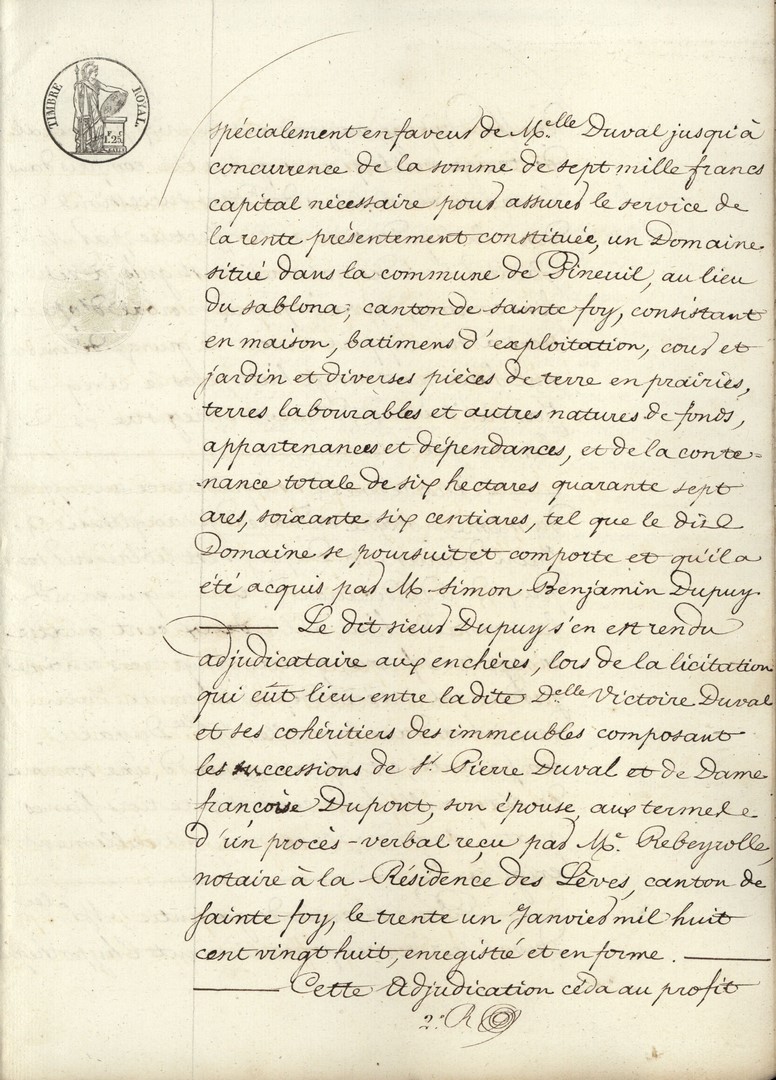 TIMBRE ROYAL
spécialement en faveur de M.elle Duval jusqu'à
concurrence de la somme de sept mille francs
capital nécessaire pour assurer le service de
la rente présentement constituée, un Domaine
situé dans la commune de Pineuil, au lieu
du sablona, canton de sainte foy, consistant
en maison, batimens d'exploitation, cour et
jardin et diverses pièces de terre en prairies,
terres labourables et autres natures de fonds,
appartenances et dépendances, et de la conte=
nance totale de six hectares quarante sept
ares, soixante six centiares, tel que le dit
Domaine se poursuit et comporte et qu'il a
été acquis par M. Simon Benjamin Dupuy
Le dit sieur Dupuy s'en est rendu
adjudicataire aux enchères, lors de la licitation
qui eût lieu entre la dite D.elle Victoire Duval
et ses cohéritiers des immeubles composant
les successions de Sr. Pierre Duval et de Dame
françoise Dupont, son épouse, aux termes
d'un procès-verbal reçu par Me. Rebeyrolle,
notaire à la Résidence des Lèves, canton de
sainte foy, le trente un Janvier mil huit
cent vingt huit, enregistré et en forme.
Cette Adjudication céda au profit
2e R